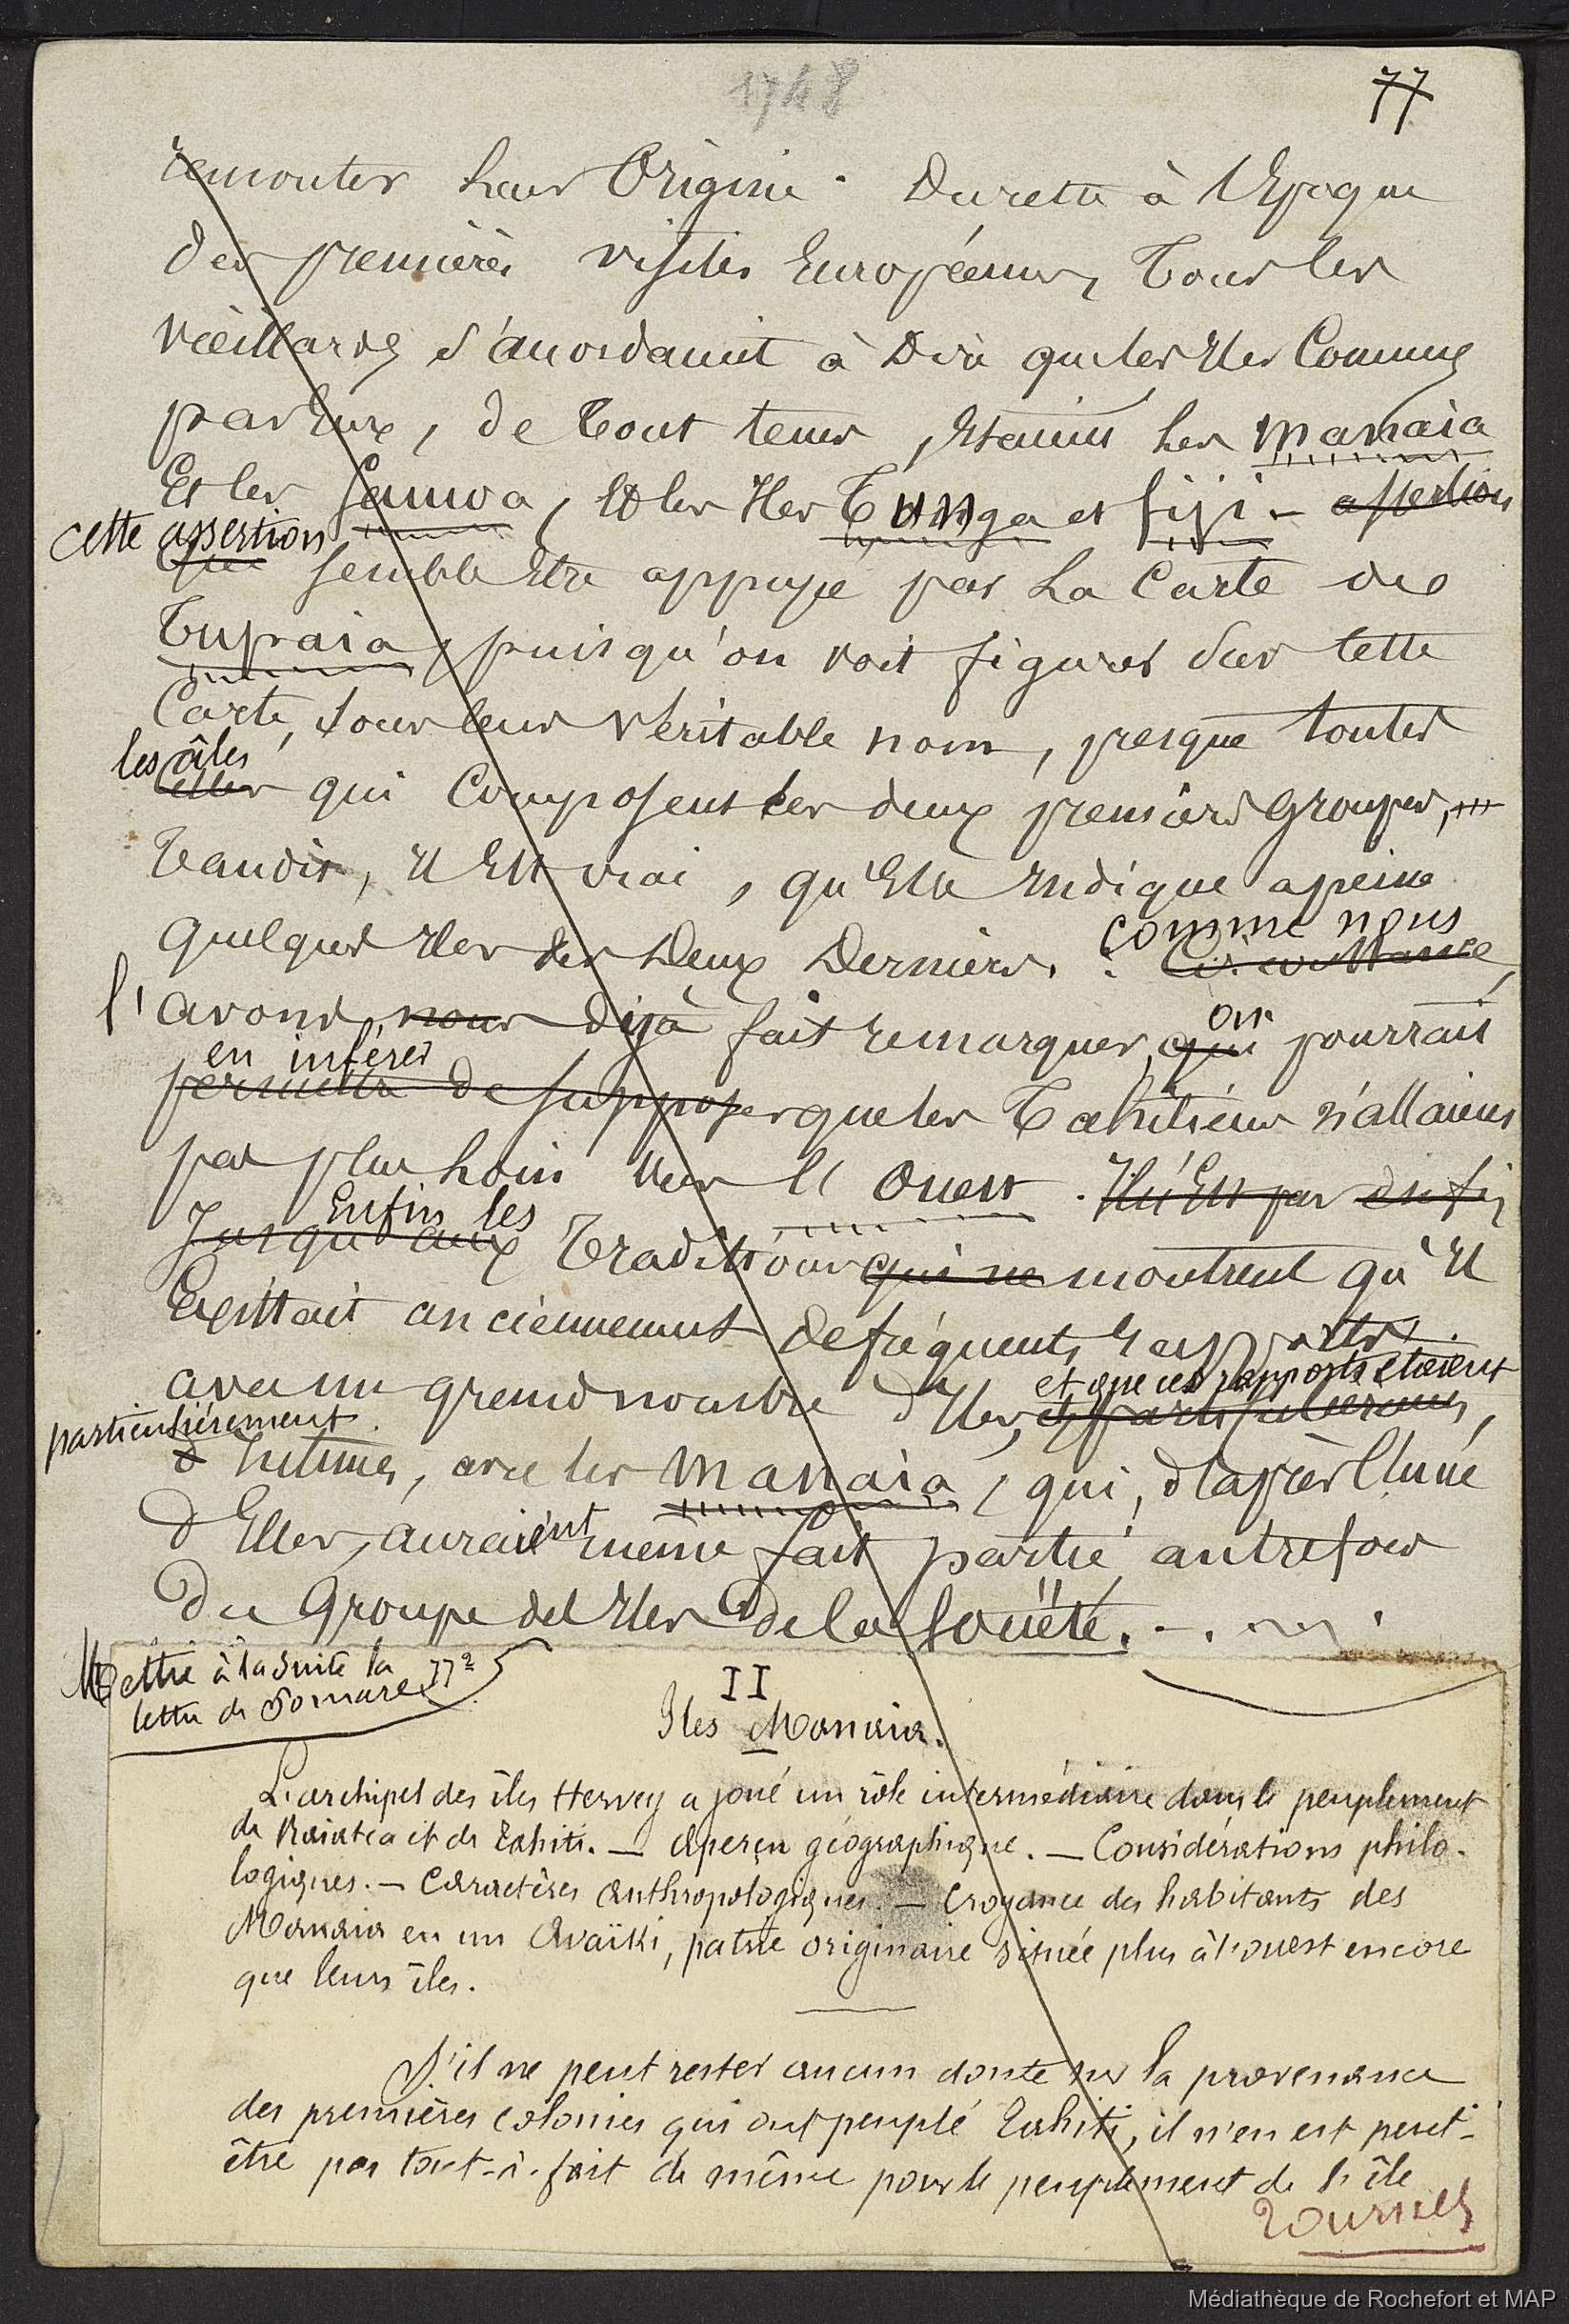 1748
77
remonter leur Origine. Du reste à l'Epoque
des premières visites Européennes, Tous les
vieillards s'accordaient à Dire que les Iles Connues
par Eux, de Tout temps, Etaient les Manaia
Et les Samoa, Et les Iles Tunga et Fiji - assertion
cette assertion
qui semble Etre appuyé par La Carte de
Tupaia, puisqu'on voit figurer sur cette
Carte, sous leur véritable nom, presque toutes
les îles
celles qui Composent les deux premiers Groupes,
Tandis, Il Est vrai, qu'Elle Indique apeine
quelques Iles des Deux Derniers. comme nous
Circonstance,
l'avons nous déjà fait remarquer, on qui pourrait
en inférer
permettre de supposer que les Tahitiens n'allaient
pas plus Loin vers l'Ouest. Il n'Est pas enfin
Enfin les
Jusqu'aux Traditions qui ne montrent qu'Il
Existait anciennement de fréquents rapports
avec un grand nombre d'Iles, et que ces rapports étaient
et particulièrement
particulièrement
d'Intimes, avec les Manaia, qui, d'après l'une
d'Elles, auraient même fait partie autrefois
Du Groupe des Iles de la Société.
Mettre à la suite la
lettre de Pomare 77²
II
Iles Manaia.
L'archipel des îles Hervey a joué un rôle intermédiaire dans le peuplement
de Raiatea et de Tahiti. — Aperçu géographique. — Considérations philo-
logiques. — Caractères anthropologiques. — Croyance des habitants des
Manaia en un Avaïki, patrie originaire située plus à l'ouest encore
que leurs îles.
S'il ne peut rester aucun doute sur la provenance
des premières colonies qui ont peuplé Tahiti, il n'en est peut-
être pas tout-à-fait de même pour le peuplement de l'île
Tournez
Médiathèque de Rochefort et MAP